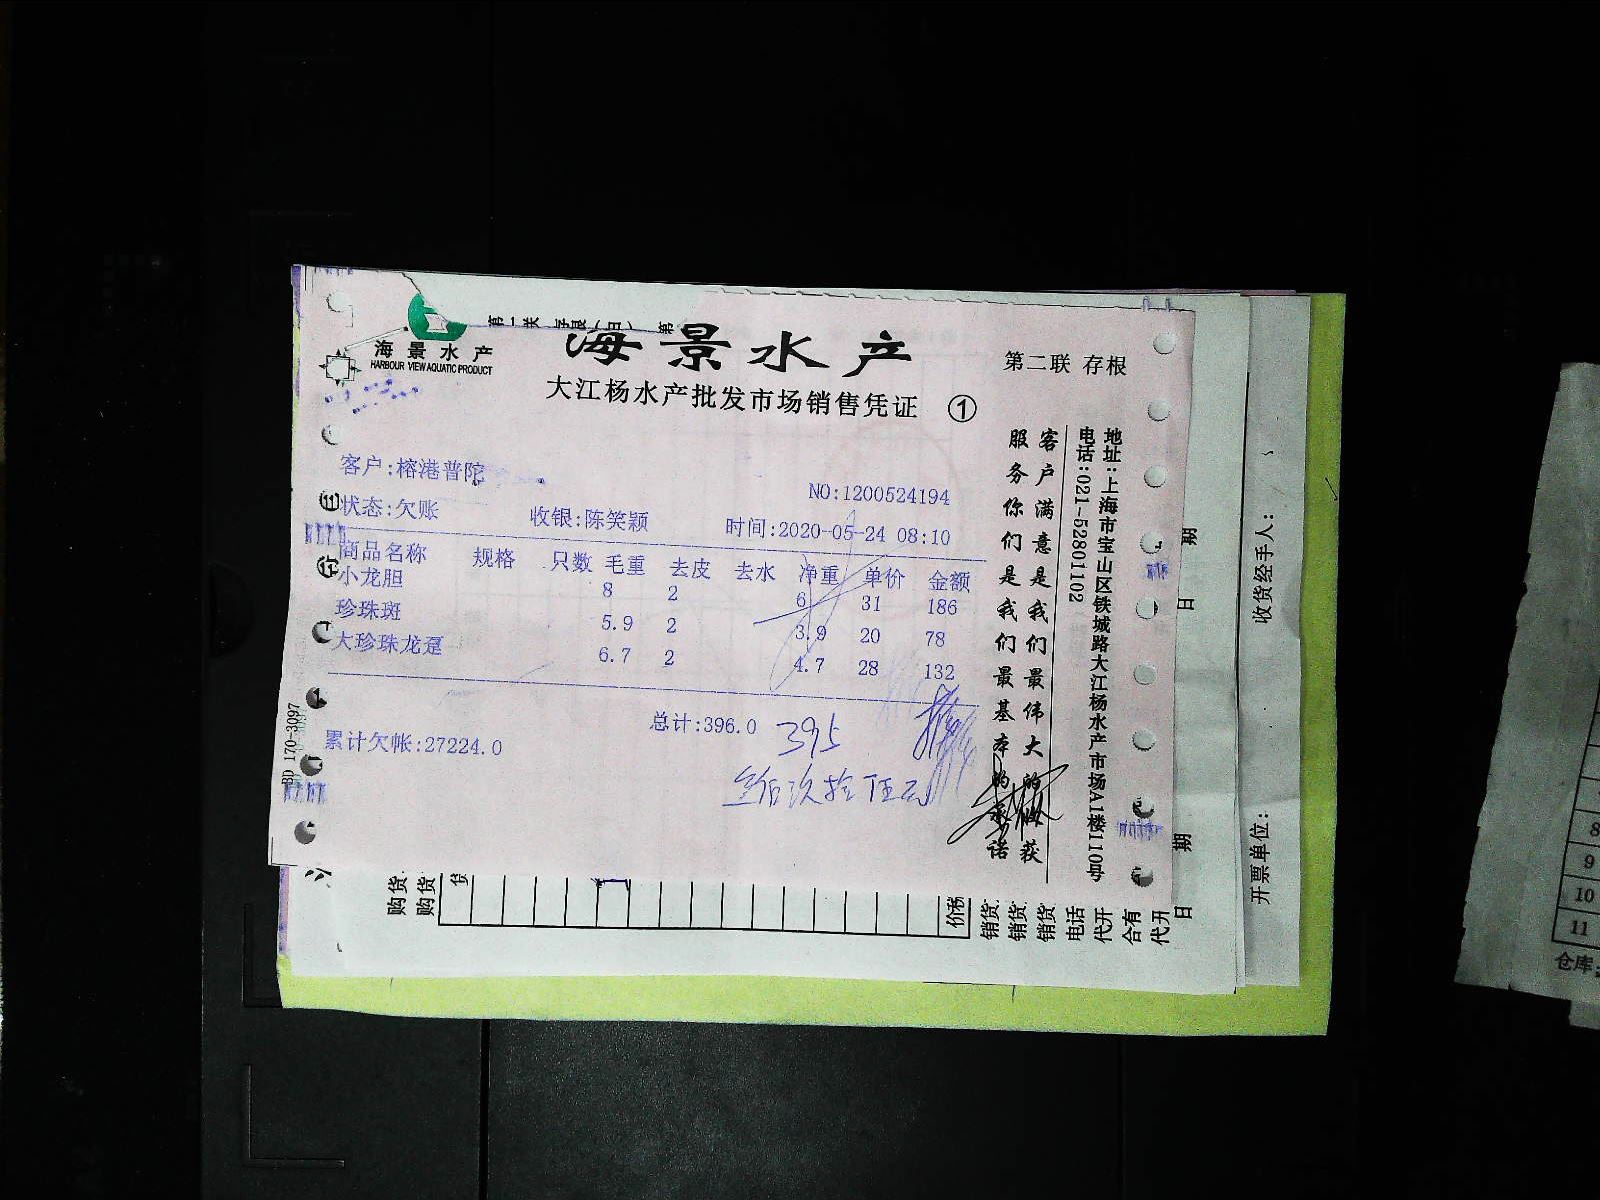 海景水产
HARBOUR VIEW AQUATIC PRODUCT
海景水产
第二联 存根
大江杨水产批发市场销售凭证 ①
客户:榕港普陀
NO:1200524194
状态:欠账 收银:陈笑颖 时间:2020-05-24 08:10
商品名称 规格 只数 毛重 去皮 去水 净重 单价 金额
小龙胆 8 2 6 31 186
珍珠斑 5.9 2 3.9 20 78
大珍珠龙趸 6.7 2 4.7 28 132
总计:396.0 395
累计欠帐:27224.0
叁佰玖拾伍元
客户满意是我们最伟大的收获
服务你们是我们最基本的承诺
地址:上海市宝山区铁城路大江杨水产市场A1楼110号
电话:021-52801102
BD 170-3097
购货
购货
货
价税
销货
销货
销货
电话
代开
合有
代开
日 期
日 期
收货经手人:
开票单位:
8
9
10
11
仓库: